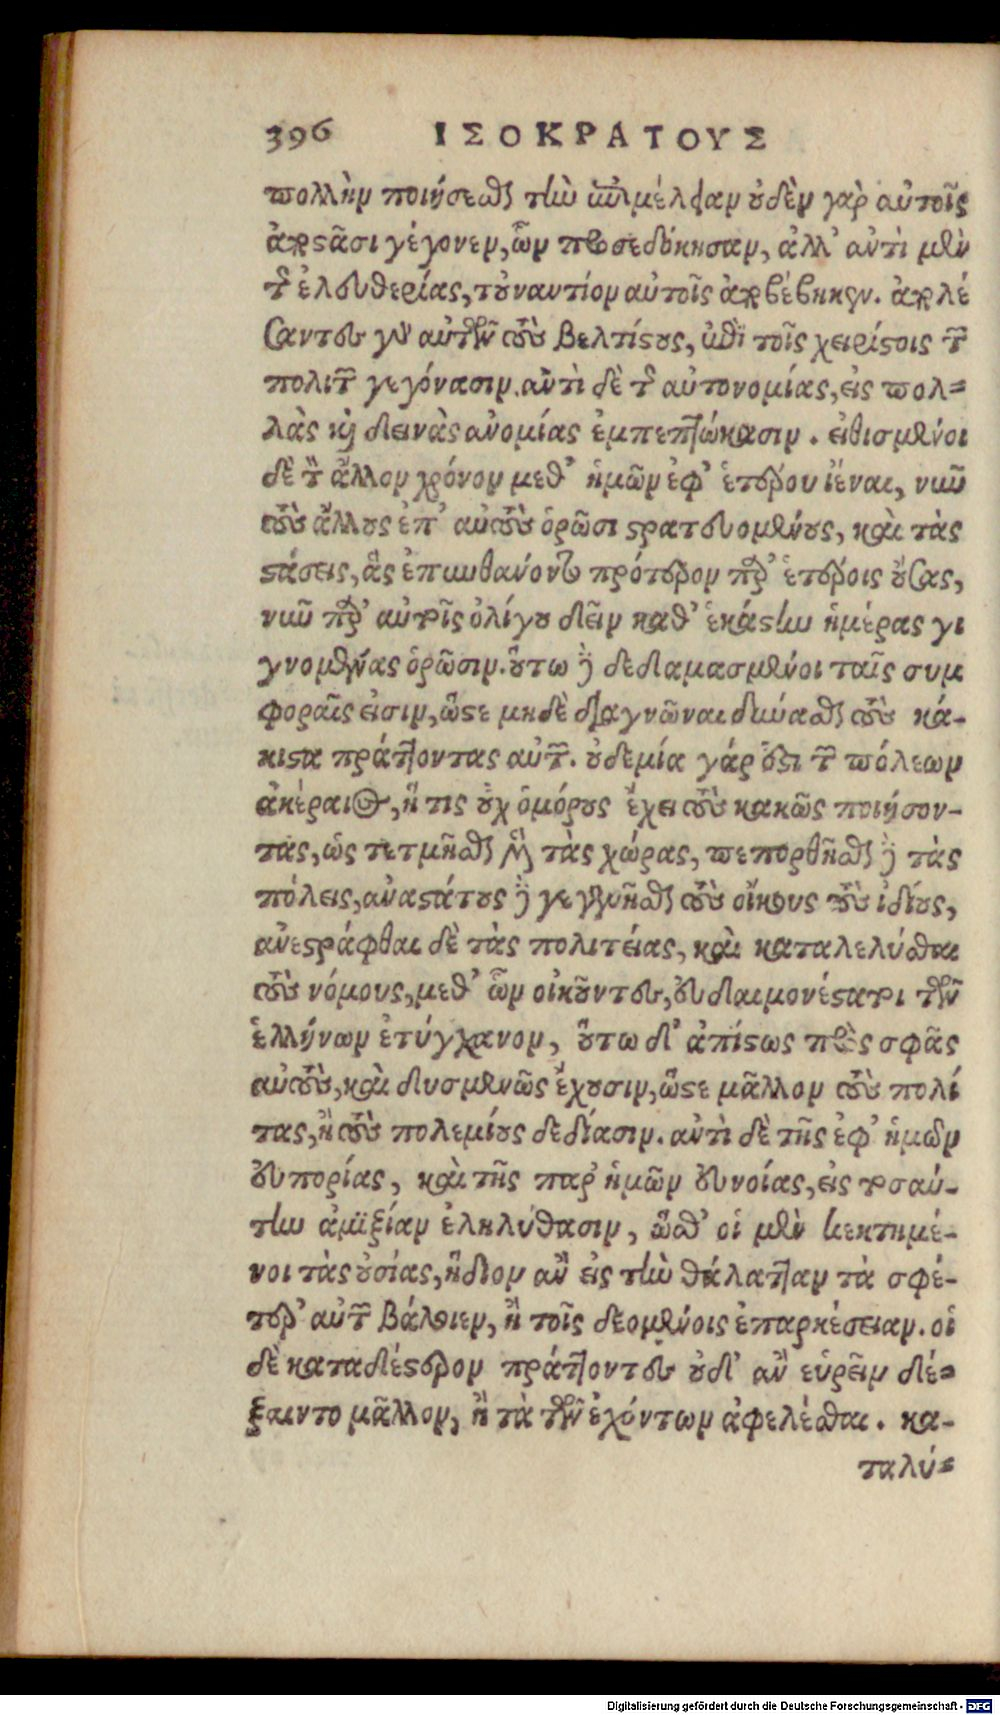 396 ΙΣΟΚΡΑΤΟΥΣ
πολλὴν ποιήσεσθαι τὴν ἐπιμέλειαν οὐδὲν γὰρ αὐτοῖς
ἀποστᾶσι γέγονεν, ὧν προσεδόκησαν, ἀλλ' ἀντὶ μὲν
τῆς ἐλευθερίας, τοὐναντίον αὐτοῖς ἀποβέβηκεν. ἀπολέ
σαντες γὰρ αὐτῶν τοὺς βελτίστους, ἐπὶ τοῖς χειρίστοις τῶν
πολιτῶν γεγόνασιν. ἀντὶ δὲ τῆς αὐτονομίας, εἰς πολ-
λὰς καὶ δεινὰς ἀνομίας ἐμπεπτώκασιν. εἰθισμένοι
δὲ τὸν ἄλλον χρόνον μεθ' ἡμῶν ἐφ' ἑτέρου ἰέναι, νῦν
τοὺς ἄλλους ἐπ' αὐτοὺς ὁρῶσι στρατευομένους, καὶ τὰς
στάσεις, ἃς ἐπυνθάνοντο πρότερον παρ' ἑτέροις οὔσας,
νῦν παρ' αὐτοῖς ὀλίγου δεῖν καθ' ἑκάστην ἡμέρας γι
γνομένας ὁρῶσιν. οὕτω δὲ δεδαμασμένοι ταῖς συμ
φοραῖς εἰσιν, ὥστε μηδὲ διαγνῶναι δύνασθαι τοὺς κά-
κιστα πράττοντας αὐτῶν. οὐδεμία γάρ ἐστι τῶν πόλεων
ἀκέραιος, ἥ τις οὐχ ὁμόρους ἔχει τοὺς κακῶς ποιήσον-
τας, ὡς τετμῆσθαι μὲν τὰς χώρας, πεπορθῆσθαι δὲ τὰς
πόλεις, ἀναστάτους δὲ γεγενῆσθαι τοὺς οἴκους τοὺς ἰδίους,
ἀνεστράφθαι δὲ τὰς πολιτείας, καὶ καταλελύσθαι
τοὺς νόμους, μεθ' ὧν οἰκοῦντες, εὐδαιμονέστατοι τῶν
ἑλλήνων ἐτύγχανον, οὕτω δ' ἀπίστως πρὸς σφᾶς
αὐτοὺς, καὶ δυσμενῶς ἔχουσιν, ὥστε μᾶλλον τοὺς πολί
τας, ἢ τοὺς πολεμίους δεδίασιν. ἀντὶ δὲ τῆς ἐφ' ἡμῶν
εὐπορίας, καὶ τῆς παρ' ἡμῶν εὐνοίας, εἰς τοσαύ-
την ἀμιξίαν ἐληλύθασιν, ὥσθ' οἱ μὲν κεκτημέ-
νοι τὰς οὐσίας, ἥδιον ἂν εἰς τὴν θάλατταν τὰ σφέ-
τερ' αὐτῶν βάλοιεν, ἢ τοῖς δεομένοις ἐπαρκέσειαν. οἱ
δὲ καταδέστερον πράττοντες οὐδ' ἂν εὑρεῖν δέ-
ξαιντο μᾶλλον, ἢ τὰ τῶν ἐχόντων ἀφελέσθαι. κα-
ταλύ-
Digitalisierung gefördert durch die Deutsche Forschungsgemeinschaft - DFG